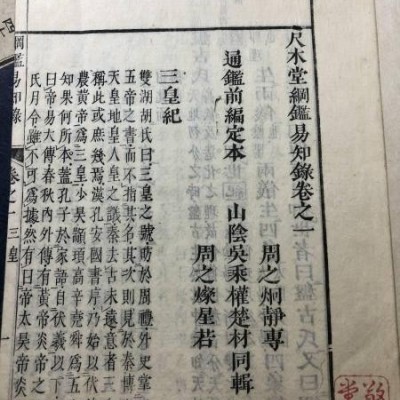 尺木堂綱鑑易知錄卷之一
周之炯靜專
通鑑前編定本 山陰吳乘權楚材同輯
周之燦星若
三皇紀
雙湖胡氏曰三皇之號昉於周禮外史掌
五帝之書而不指其名其次則見於秦博
天皇地皇人皇之議秦去古未遠意者三
稱此或庶幾焉漢孔安國書序乃始以伏
農黃帝爲三皇少昊顓頊高辛堯舜爲五
知果何所本蓋孔子於家語自伏羲以下
曰帝易大傳春秋內外傳有黃帝炎帝之
氏月令雖不可爲據然有曰帝太昊帝炎
綱鑑易知錄 卷之一 三皇 一